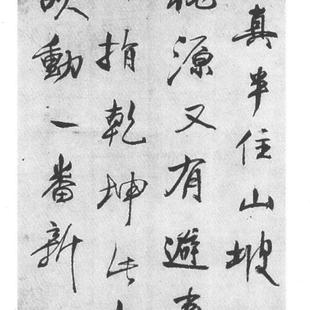 真半住山坡
源又有避
指乾坤
動一番新